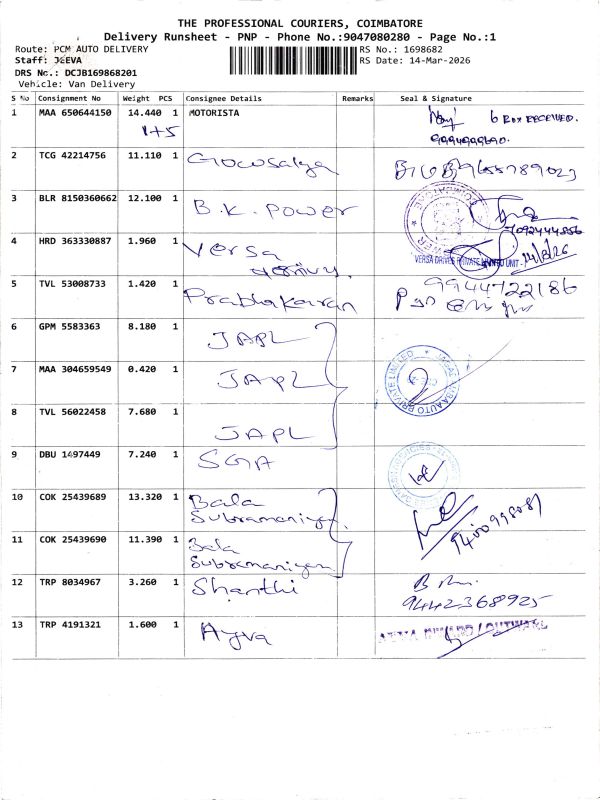 THE PROFESSIONAL COURIERS, COIMBATORE
Delivery Runsheet - PNP - Phone No.:9047080280 - Page No.:1
Route: PCM AUTO DELIVERY RS No.: 1698682
Staff: JEEVA RS Date: 14-Mar-2026
DRS No.: DCJB169868201
Vehicle: Van Delivery
S No Consignment No Weight PCS Consignee Details Remarks Seal & Signature
1 MAA 650644150 14.440 1 MOTORISTA 6 Box RECEIVED.
1+5
2 TCG 42214756 11.110 1 Gowsalya
3 BLR 8150360662 12.100 1 B.K. Power
4 HRD 363330887 1.960 1 Versa
VERSA DRIVES PRIVATE LIMITED UNIT -
5 TVL 53008733 1.420 1 Prabhakaran 9944722186
6 GPM 5583363 8.180 1 JAPL
7 MAA 304659549 0.420 1 JAPL
8 TVL 56022458 7.680 1 JAPL
9 DBU 1497449 7.240 1 SGA
10 COK 25439689 13.320 1 Bala
Subramaniyan
11 COK 25439690 11.390 1 Bala
Subramaniyan
12 TRP 8034967 3.260 1 Shanthi
9442368925
13 TRP 4191321 1.600 1 Ayva